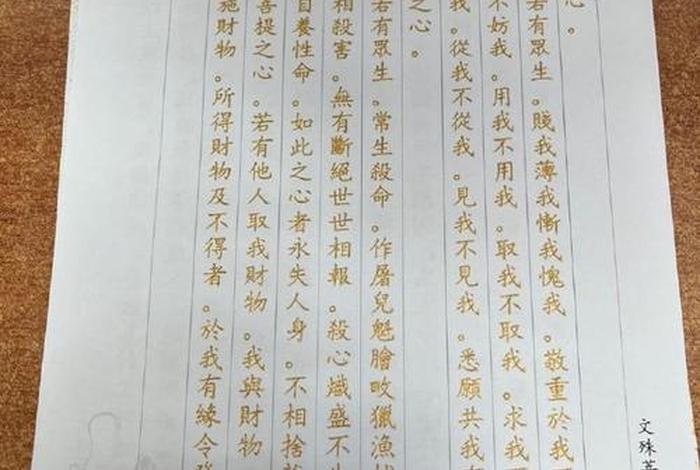 文殊
心。
若有眾生。賤我薄我慚我愧我。敬重於我
不妨我。用我不用我。取我不取我。求我
我。從我不從我。見我不見我。悉願共我
之心。
若有眾生。常生殺命。作屠兒魁膾畋獵漁
相殺害。無有斷絕世世相報。殺心熾盛不
自養性命。如此之心者永失人身。不相捨
菩提之心。若有他人取我財物。我與財物
施財物。所得財物及不得者。於我有緣令